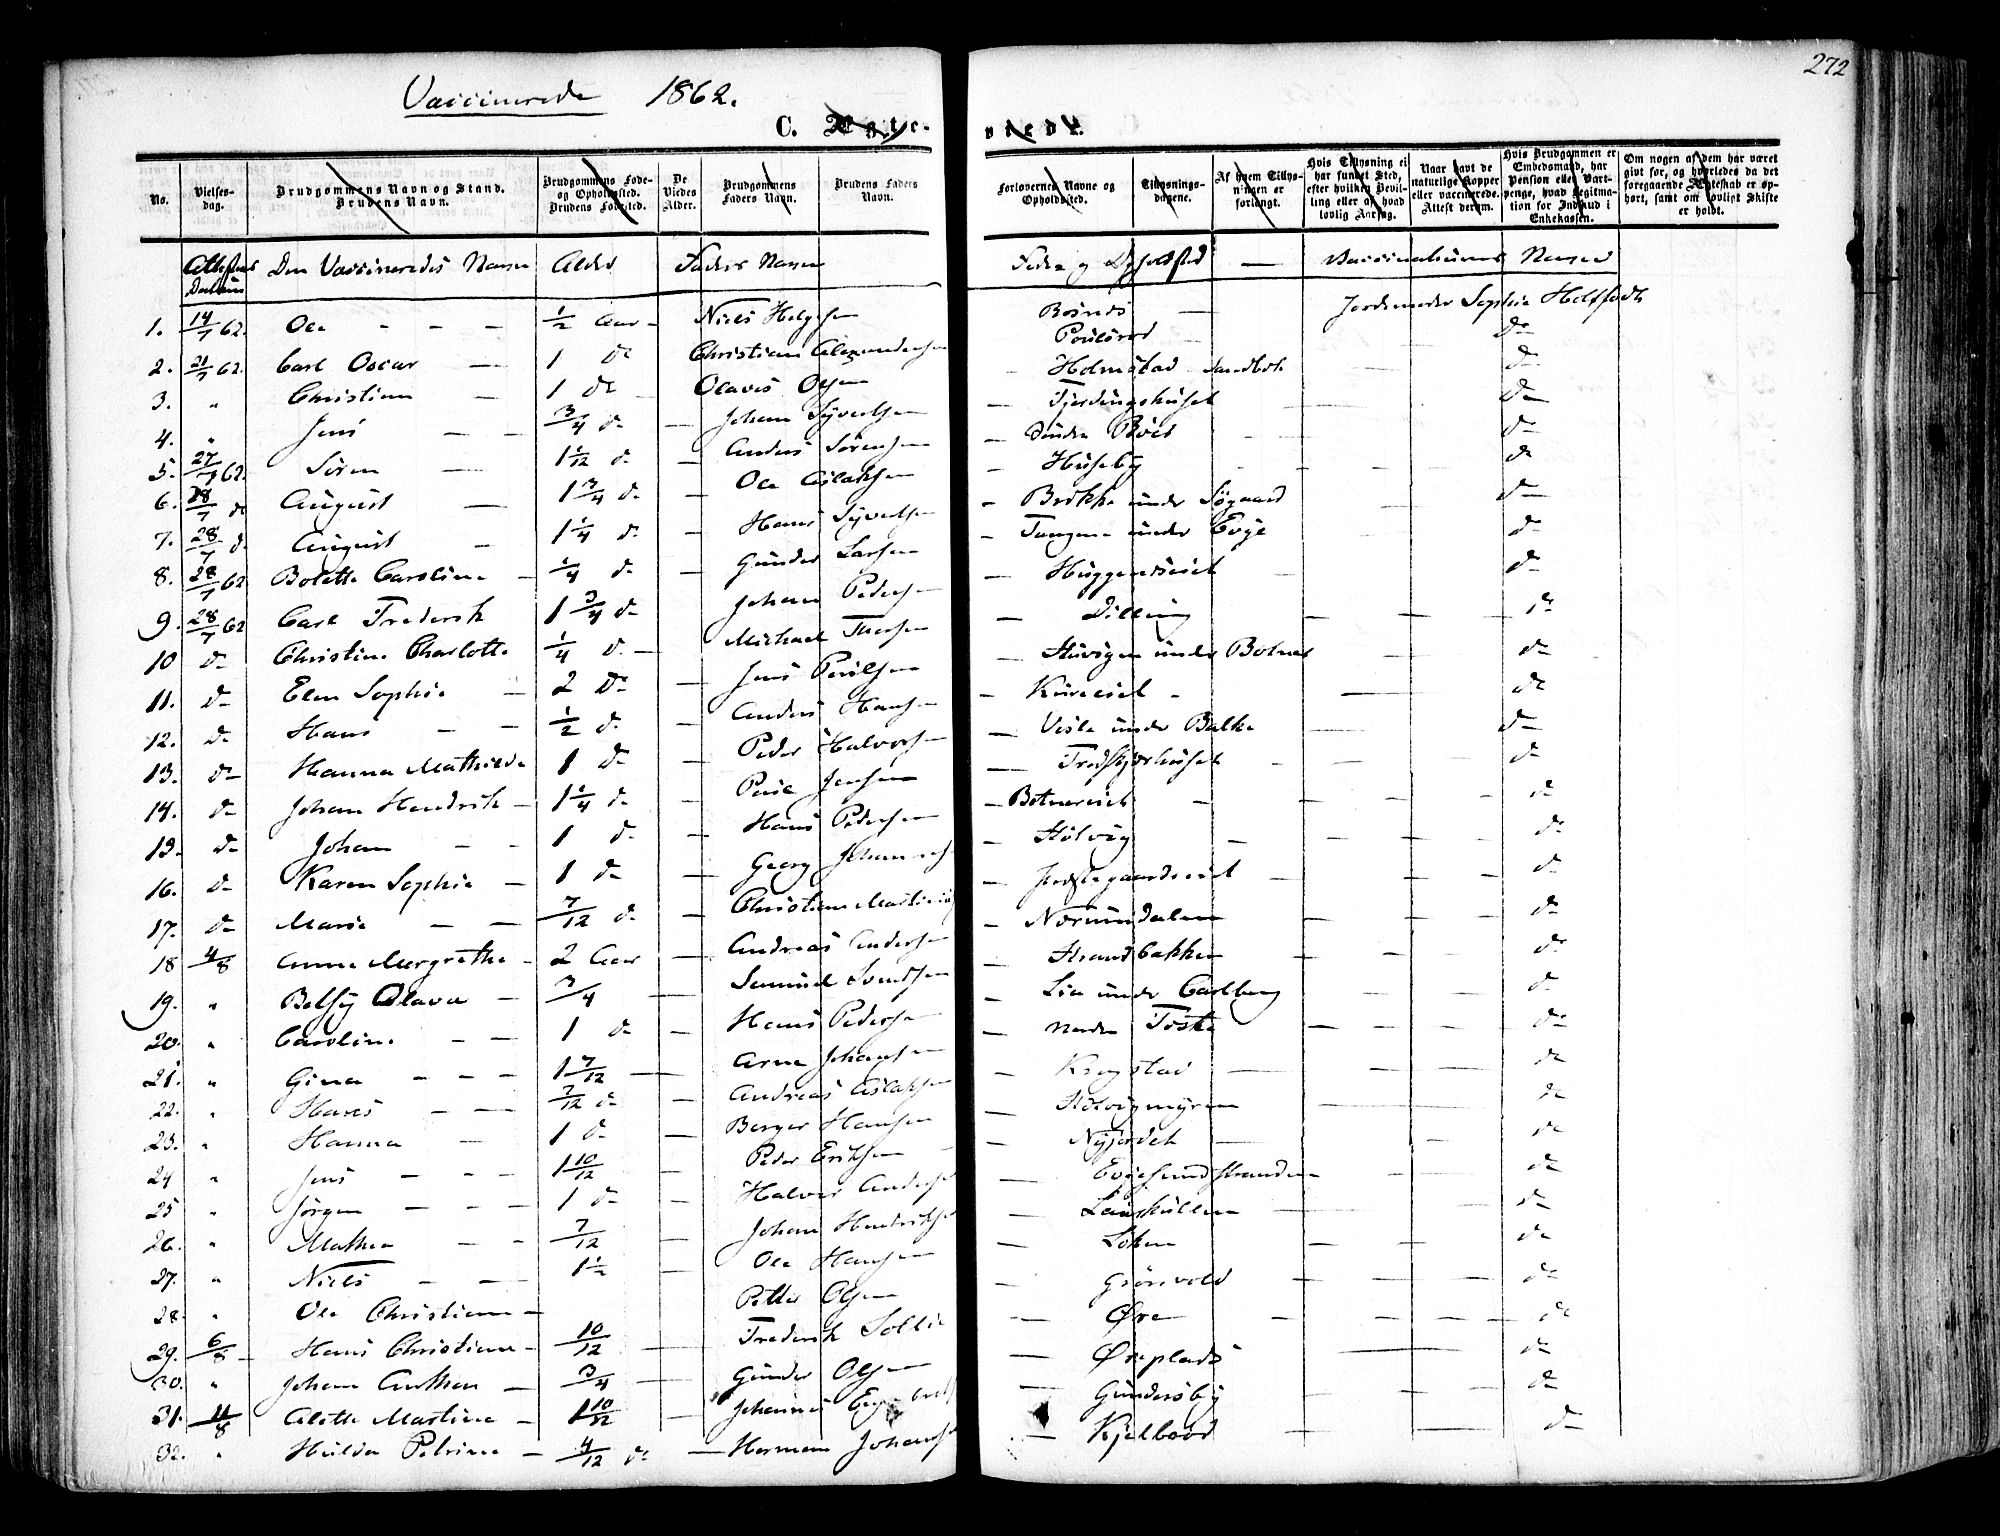 272
Vaccinerede 1862.
C. Ægte- viede.
No. Vielses-dag. Brudgommens Navn og Stand. Brudens Navn. Brudgommens Føde- og Opholdssted. Brudens Fødested. De Viedes Alder. Brudgommens Faders Navn. Brudens Faders Navn. Forlovernes Navne og Opholdssted. Tillysnings-dagene. Af hvem Tillysningen er forlangt. Hvis Tillysning ei har fundet Sted, efter hvilken Bevilling eller af hvad lovlig Aarsag. Naar havt de naturlige Kopper eller vaccinerede. Attest derom. Hvis Brudgommen er Embedsmand, har Pension eller Vartpenge, hvad Legitimation for Indskud i Enkekassen. Om nogen af dem har været givt før, og hvorledes da det foregaaende Ægteskab er ophørt, samt om lovligt Skifte er holdt.
Attestens Datum Den Vaccineredes Navn Alder Faders Navn Føde og Opholdsted — Vaccinateurens Navn
1. 14/7 62. Ole — — — 1/2 Aar — Niels Helgesen Poulsrød — Jordemoder Sophie Helffodt
2. 21/7 62. Carl Oscar — 1 do Christian Alexandersen Holmstad Sandbek do
3. " Christian — 1 do — Olaves Olsen — Fjerdingshuset do
4. " Jens — — 3/4 do — Johan Syvertsen — Søndre Røes do
5. 27/7 62. Søren — 1 1/12 do — Anders Sørensen — Huseby do
6. 28/7 do August — 1 3/4 do — Ole Aslaksen — Brekke under Søgaard do
7. 28/7 do August — 1 1/4 do — Hans Syvertsen — Tangen under Evje do
8. 28/7 62 Bolette Caroline — 1/4 do — Gunder Larsen — Huggenæseiet do
9. 28/7 62 Carl Frederik 1 3/4 do — Johan Pedersen — Dilling — do
10 do Christine Charlotte 1/4 do — Michael Thorsen — Støvigen under Botner do
11. do Elen Sophie — 2 do — Jens Poulsen — Kureeiet — do
12. do Hans — — 1/2 do Anders Hansen Vesle under Balke do
13. do Hanna Mathilde 1 do — Peder Halvorsen — Fredskjærhuset do
14. do Johan Hendrik — 1 1/4 do — Poul Jensen — Botnereiet — do
15. do Johan — — 1 do — Hans Pedersen — Hølvig — do
16. do Karen Sophie — 1 do — Georg Johannes — Jonstegaardseiet — do
17. do Marie — — 7/12 do — Christian Martinius — Norumdalen do
18 4/8 Anne Margrethe — 2 Aar — Andreas Andersen — Strandbakken — do
19. " Betsy Olava — 3/4 — Samuel Svendsen — Lia under Carlberg do
20. " Caroline — — 1 do — Hans Pedersen — nordre Toske — do
21. " Gina — — — 1 7/12 — Arne Johansen — Krogstad — do
22. " Hans — — — 7/12 do — Andreas Aslaksen — Hølvigmyren do
23. " Hanna — 1 do — Berger Hansen — Nyjordet — do
24 " Jens — — 1 10/12 — Peder Eriksen — Evjesundstranden — do
25 " Jørgen — — — 1 do — Halvor Andersen — Lauskullen — do
26. " Mathea — — 7/12 — Johan Hendriksen — Løken — do
27. " Niels — — 1 1/2 — Ole Hansen — Grønvold — do
28. " Ole Christian — Petter Olsen — Øre — do
29. 6/8 — Hans Christian — 10/12 — Frederik Sollie — Øreplads — do
30. " Johan Anthon — 3/4 — Gunder Olsen — Gundersby do
31. 11/8 Alette Martine — 1 10/12 — Johannes — do
32. " Hulda Petrine — 4/12 do — Herman Johansen — Kjelbord — do